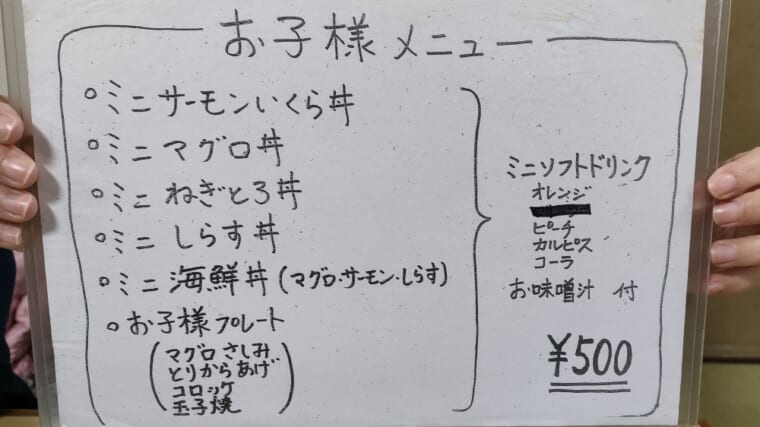 お子様メニュー
○ミニサーモンいくら丼
○ミニマグロ丼
○ミニねぎとろ丼
○ミニしらす丼
○ミニ海鮮丼(マグロ・サーモン・しらす)
○お子様プレート
(マグロさしみ
とりからあげ
コロッケ
玉子焼)
ミニソフトドリンク
オレンジ
ピーチ
カルピス
コーラ
お味噌汁 付
¥500